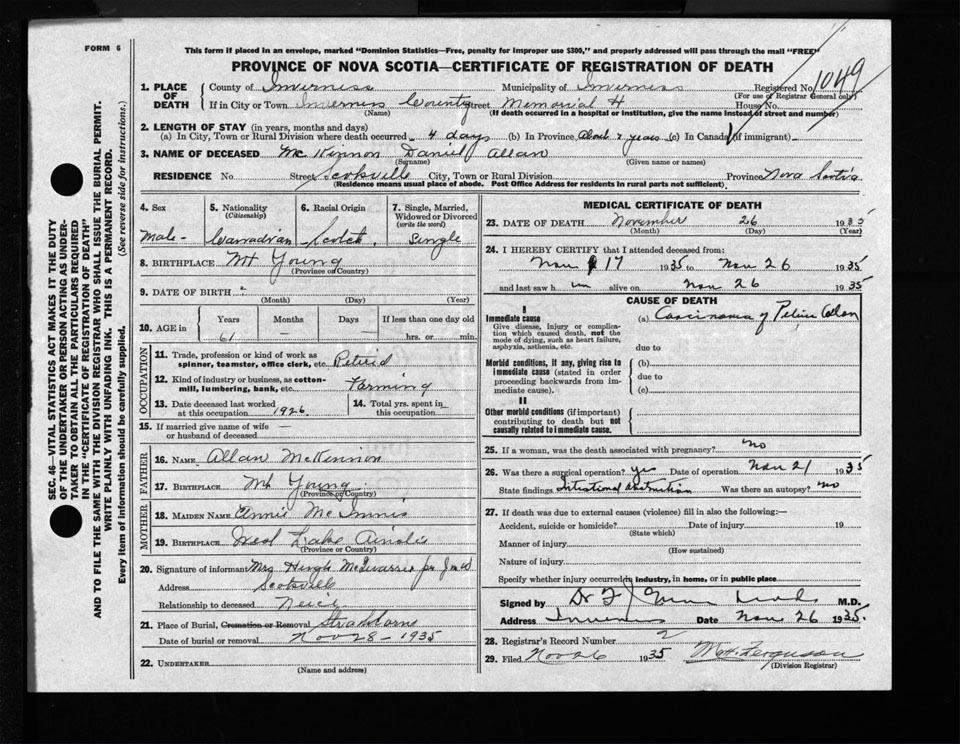 FORM 6
This form if placed in an envelope, marked "Dominion Statistics—Free, penalty for improper use $300," and properly addressed will pass through the mail "FREE"
PROVINCE OF NOVA SCOTIA—CERTIFICATE OF REGISTRATION OF DEATH
1. PLACE OF DEATH County of Inverness Municipality of Inverness Registered No. 1049
(For use of Registrar General only)
If in City or Town Inverness County Street Memorial H House No.
(Name) (If death occurred in a hospital or institution, give the name instead of street and number)
2. LENGTH OF STAY (in years, months and days)
(a) In City, Town or Rural Division where death occurred 4 days (b) In Province About years (c) In Canada (if immigrant)
3. NAME OF DECEASED McKinnon Daniel Allan
(Surname) (Given name or names)
RESIDENCE No. Street Scotsville City, Town or Rural Division Province Nova Scotia
(Residence means usual place of abode. Post Office Address for residents in rural parts not sufficient)
4. Sex 5. Nationality (Citizenship) 6. Racial Origin 7. Single, Married, Widowed or Divorced (write the word)
Male - Cannadian Scotch Single
8. BIRTHPLACE Mt Young
(Province or Country)
9. DATE OF BIRTH ?
(Month) (Day) (Year)
10. AGE in Years Months Days If less than one day old
61 — — hrs. or min.
OCCUPATION
11. Trade, profession or kind of work as spinner, teamster, office clerk, etc. Retired
12. Kind of industry or business, as cotton-mill, lumbering, bank, etc. Farming
13. Date deceased last worked at this occupation 1926. 14. Total yrs. spent in this occupation —
15. If married give name of wife or husband of deceased —
FATHER
16. NAME Allan McKinnon
17. BIRTHPLACE Mt Young
(Province or Country)
MOTHER
18. MAIDEN NAME Annie McInnis
19. BIRTHPLACE West Lake Ainslie
(Province or Country)
20. Signature of informant Mrs Hugh per
Address Scotsville
Relationship to deceased Neice
21. Place of Burial, Cremation or Removal Strathlorne
Date of burial or removal Nov 28 - 1935
22. UNDERTAKER
(Name and address)
MEDICAL CERTIFICATE OF DEATH
23. DATE OF DEATH November 26 1935
(Month) (Day) (Year)
24. I HEREBY CERTIFY that I attended deceased from:
Nov 17 1935 to Nov 26 1935
and last saw him alive on Nov 26 1935
CAUSE OF DEATH
I
Immediate cause (a) Carcinoma of Pelvic Colon
Give disease, injury or complication which caused death, not the mode of dying, such as heart failure, asphyxia, asthenia, etc.
due to
Morbid conditions, if any, giving rise to immediate cause (stated in order proceeding backwards from immediate cause).
(b)
due to
(c)
II
Other morbid conditions (if important) contributing to death but not causally related to immediate cause.
25. If a woman, was the death associated with pregnancy? no
26. Was there a surgical operation? yes Date of operation Nov 21 1935
State findings Intestinal obstruction Was there an autopsy? no
27. If death was due to external causes (violence) fill in also the following:—
Accident, suicide or homicide? Date of injury 19
(State which)
Manner of injury
(How sustained)
Nature of injury
Specify whether injury occurred in industry, in home, or in public place
Signed by Dr M.D.
Address Inverness Date Nov 26 1935.
28. Registrar's Record Number 2
29. Filed Nov 26 1935 M H. Ferguson
(Division Registrar)
SEC. 46—VITAL STATISTICS ACT MAKES IT THE DUTY
OF THE UNDERTAKER OR PERSON ACTING AS UNDER-
TAKER TO OBTAIN ALL THE PARTICULARS REQUIRED
IN THE "CERTIFICATE OF REGISTRATION OF DEATH"
AND TO FILE THE SAME WITH THE DIVISION REGISTRAR WHO SHALL ISSUE THE BURIAL PERMIT.
WRITE PLAINLY WITH UNFADING INK. THIS IS A PERMANENT RECORD.
Every item of information should be carefully supplied. (See reverse side for instructions.)